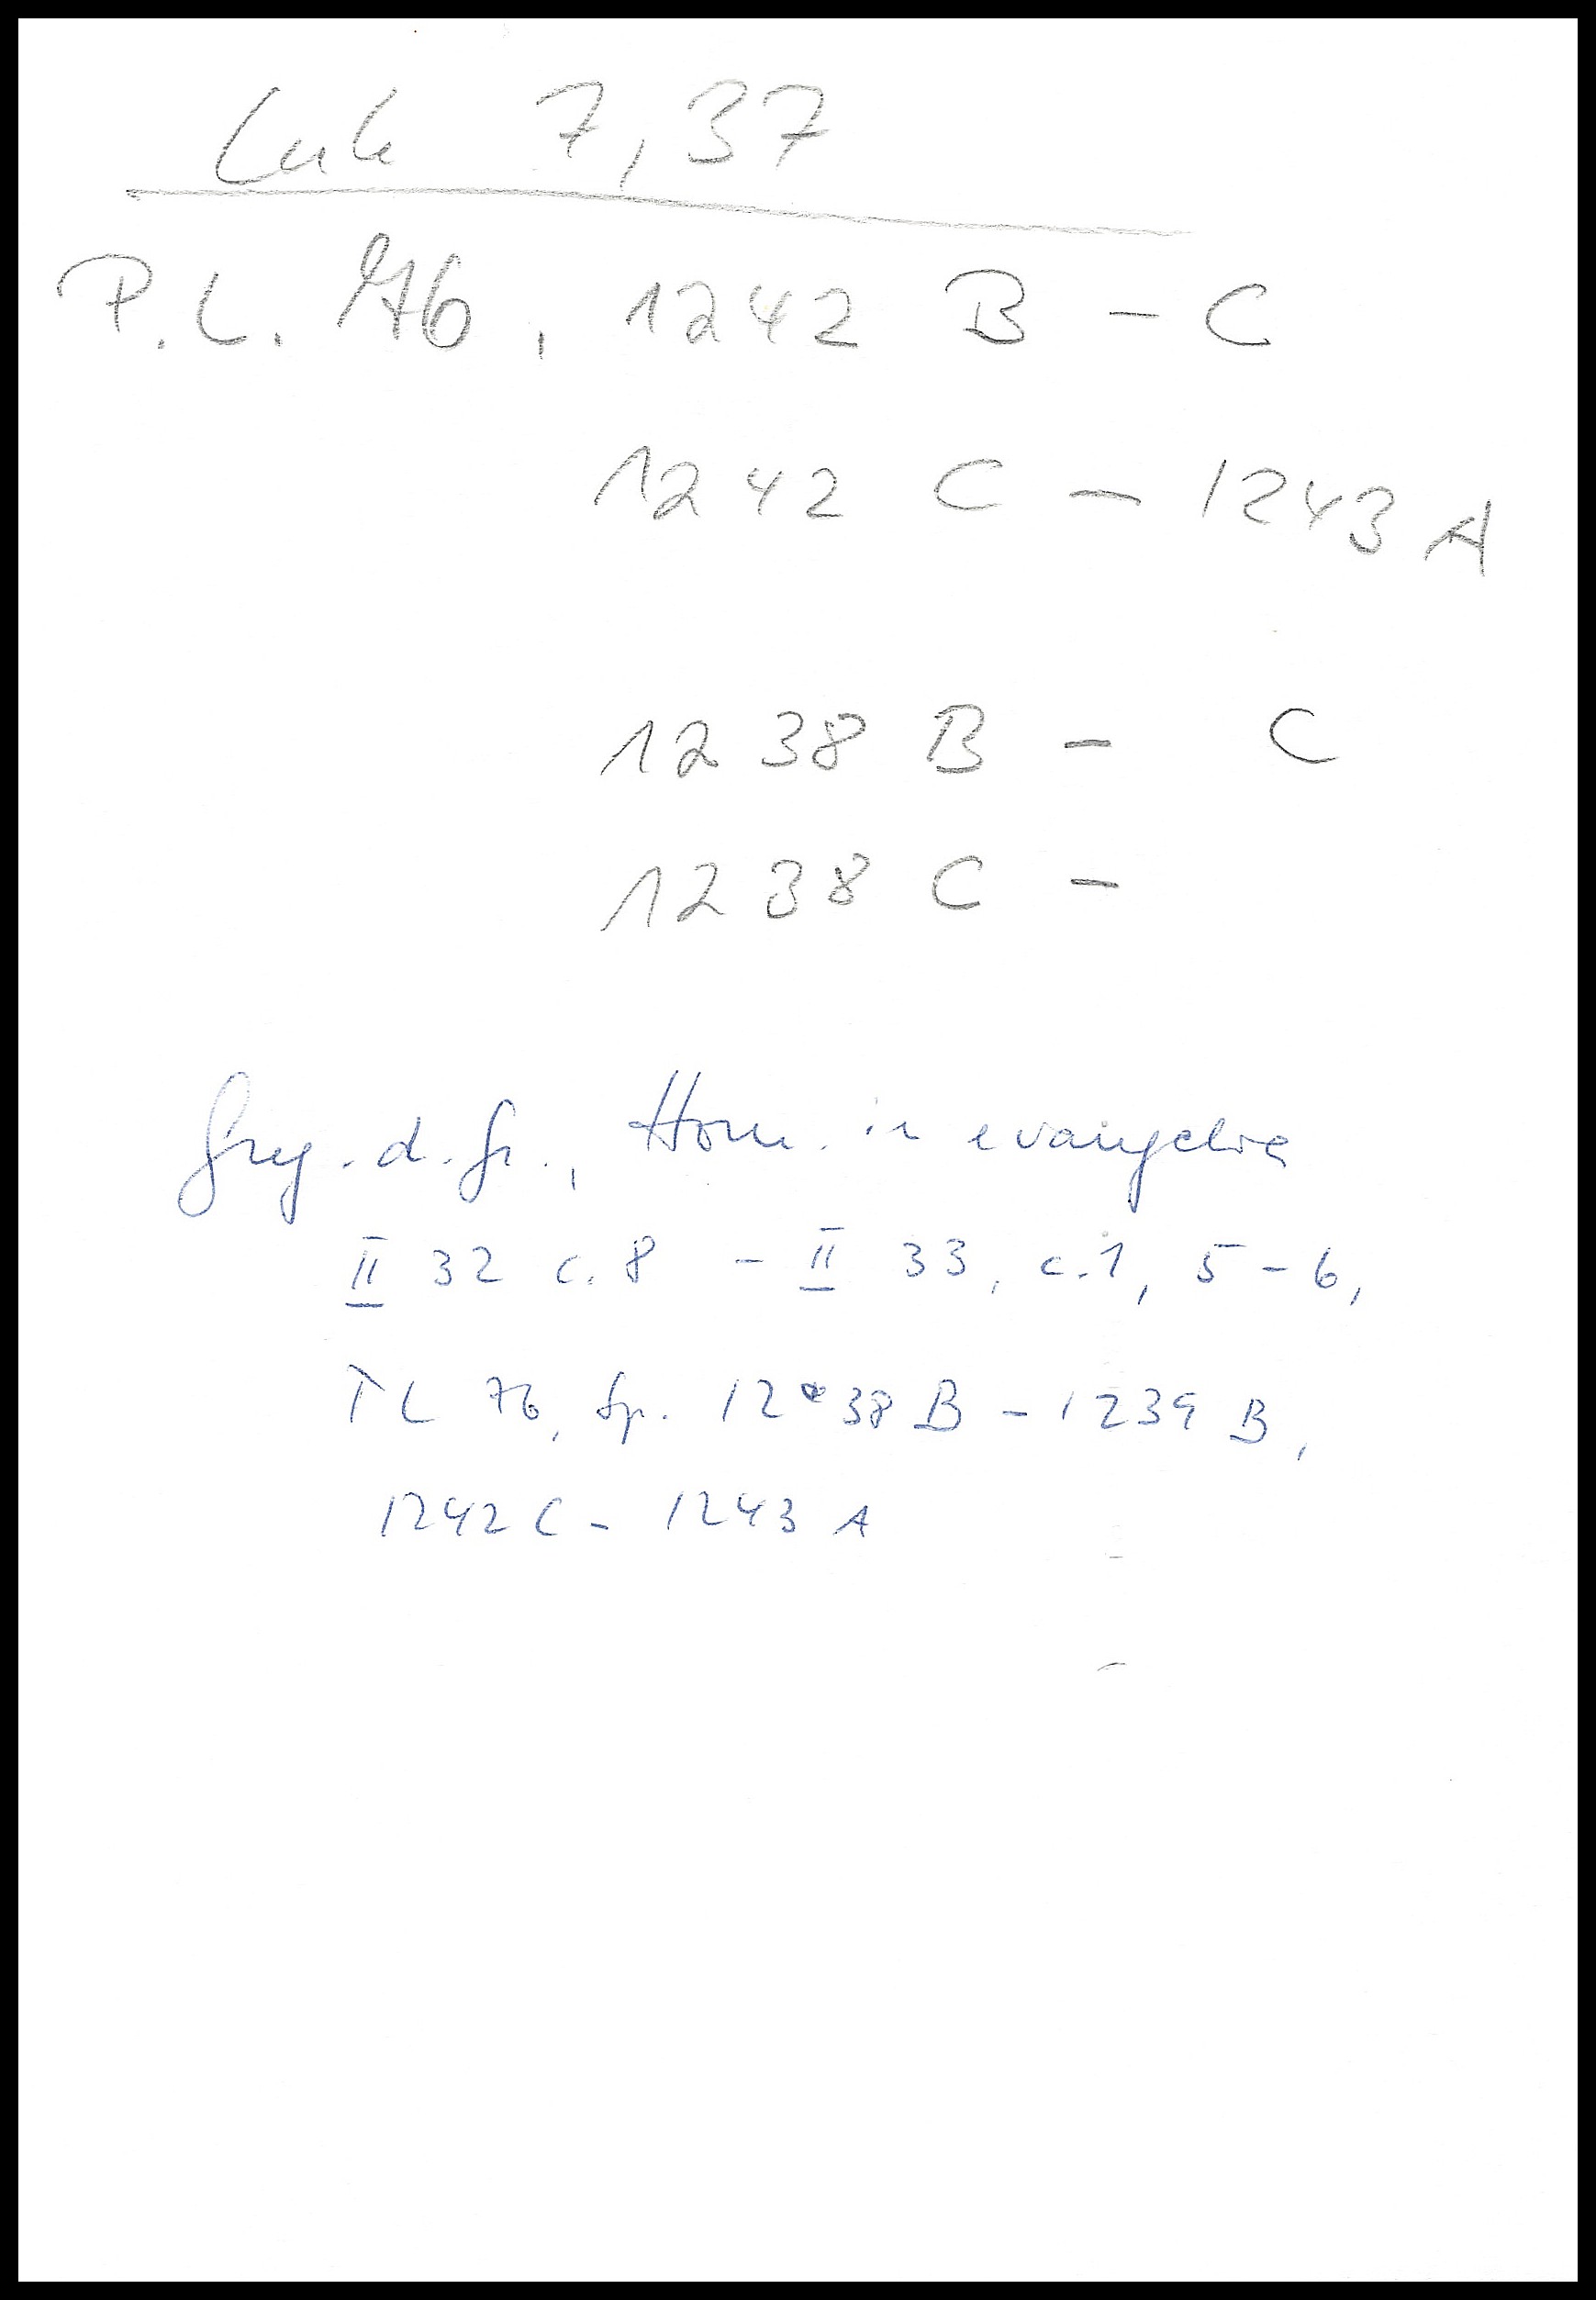 Luk 7,37
P.L. 76, 1242 B - C
1242 C - 1243 A
1238 B - C
1238 C -
Greg. d. Gr., Hom. in evangelia
II 32 c. 8 - II 33, c. 1, 5-6,
PL 76, Sp. 1238 B - 1239 B,
1242 C - 1243 A